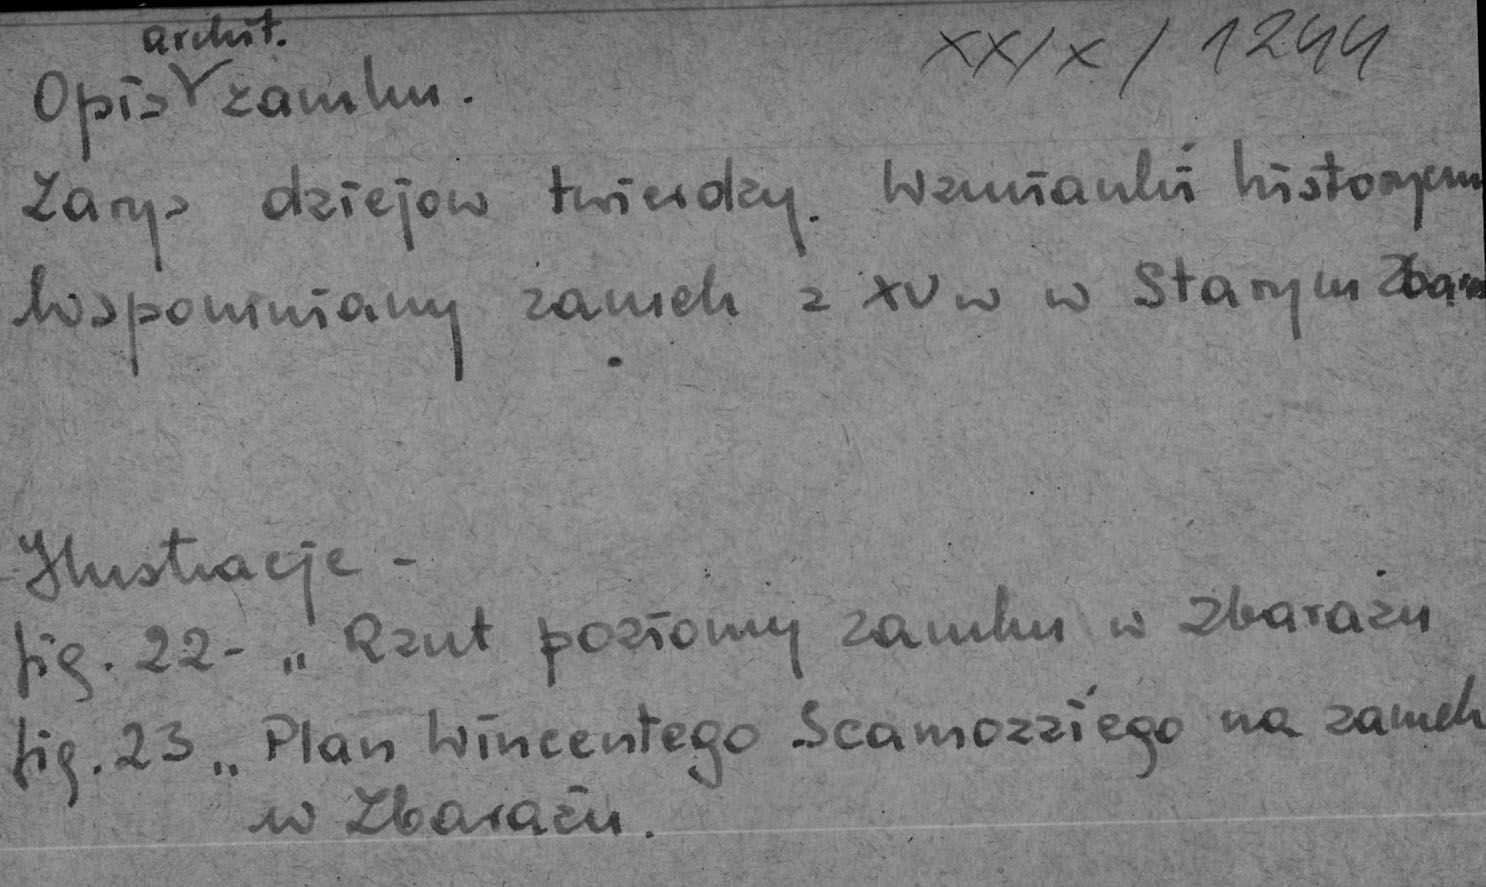 archit.
XX/X/1244
Opis zamku.
Zarys dziejow twierdzy. Wzmianki historyczn
Wspomniany zamek z XV w w Starym Zbara
Ilustracje -
fig. 22 - „ Rzut poziomy zamku w Zbarażu
fig. 23 „ Plan Wincentego Scamozziego na zamek
w Zbarażu.